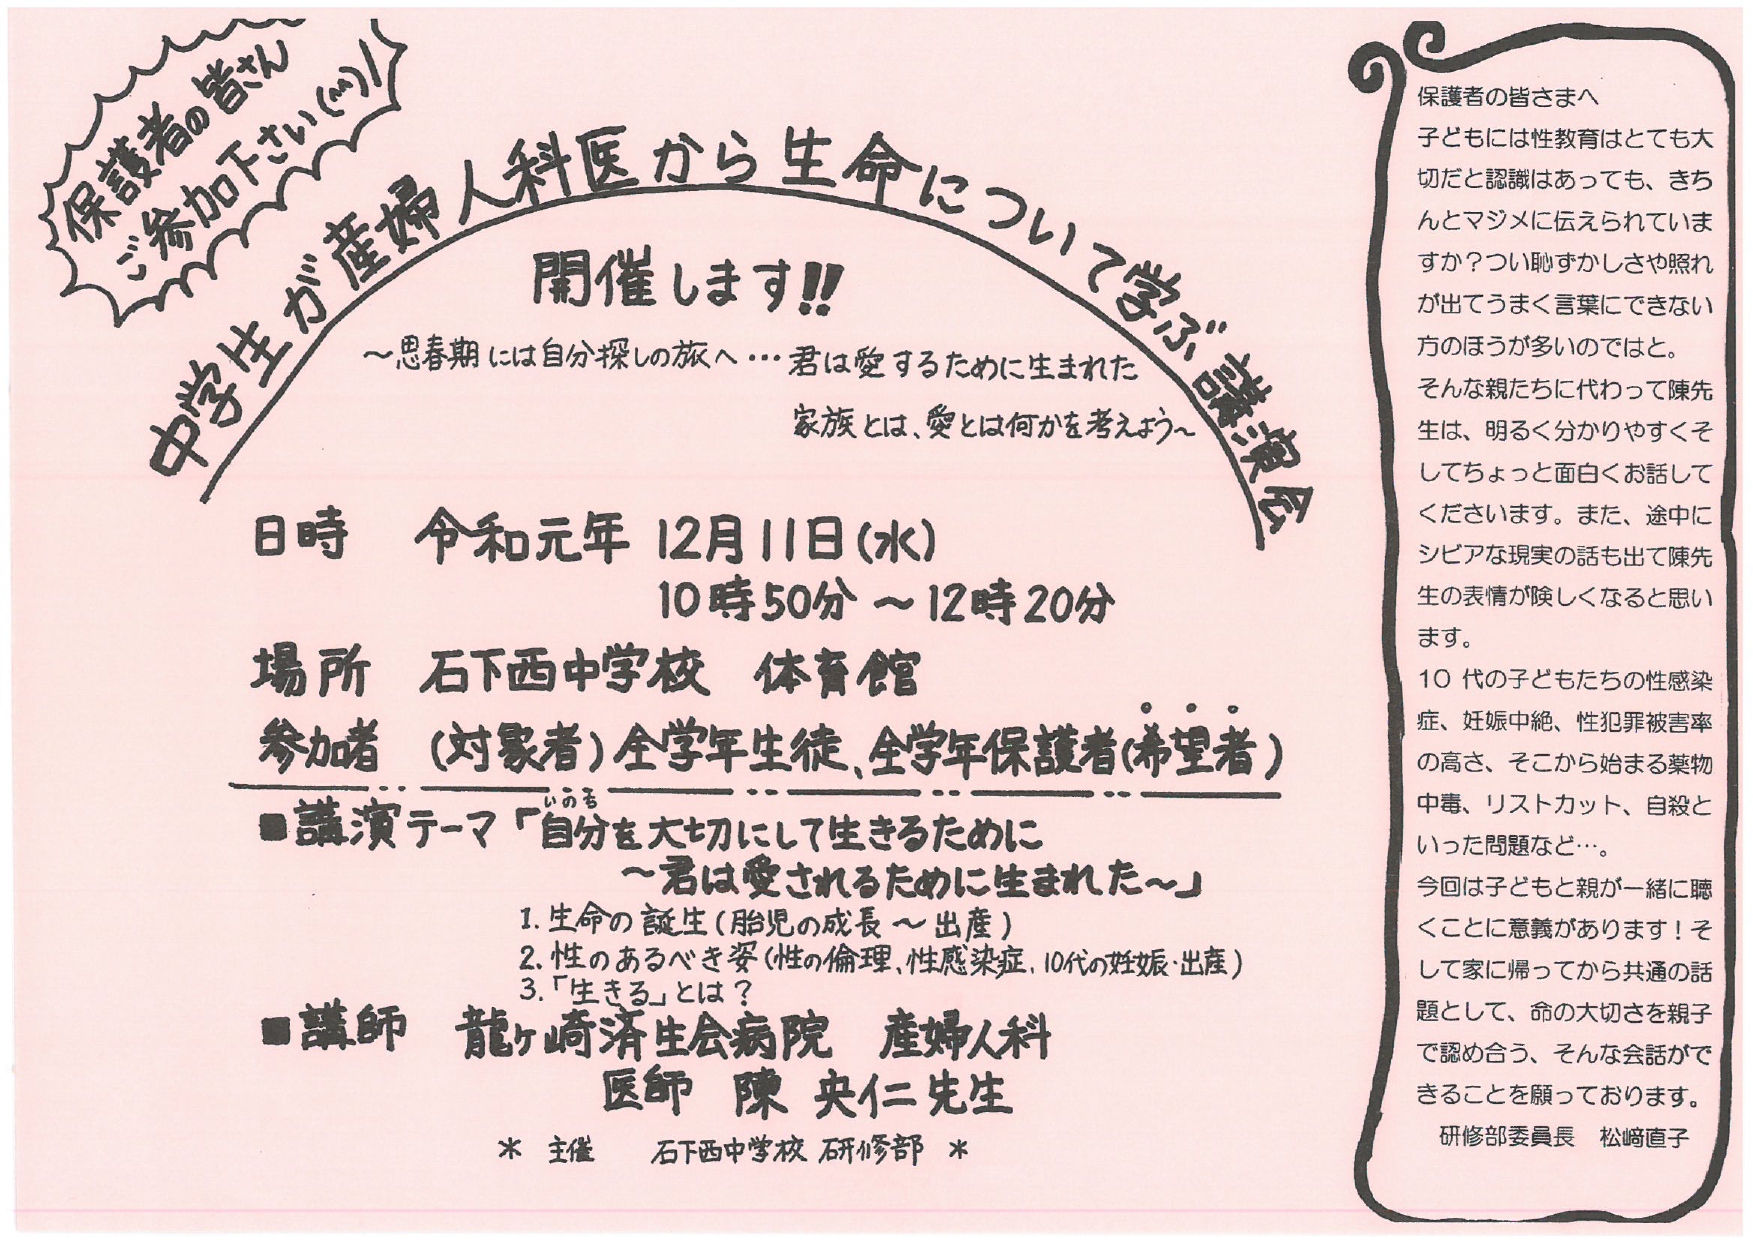 保護者の皆さん
ご参加下さい(^^)/
中学生が産婦人科医から生命について学ぶ講演会
開催します!!
～思春期には自分探しの旅へ…君は愛するために生まれた
家族とは、愛とは何かを考えよう～
日時 令和元年 12月11日(水)
10時50分～12時20分
場所 石下西中学校 体育館
参加者 (対象者)全学年生徒、全学年保護者(希望者)
いのち
■講演テーマ「自分を大切にして生きるために
～君は愛されるために生まれた～」
1. 生命の誕生(胎児の成長～出産)
2. 性のあるべき姿(性の倫理、性感染症、10代の妊娠・出産)
3.「生きる」とは?
■講師 龍ヶ崎済生会病院 産婦人科
医師 陳 央仁先生
＊ 主催 石下西中学校 研修部 ＊
保護者の皆さまへ
子どもには性教育はとても大
切だと認識はあっても、きち
んとマジメに伝えられていま
すか？つい恥ずかしさや照れ
が出てうまく言葉にできない
方のほうが多いのではと。
そんな親たちに代わって陳先
生は、明るく分かりやすくそ
してちょっと面白くお話して
くださいます。また、途中に
シビアな現実の話も出て陳先
生の表情が険しくなると思い
ます。
10 代の子どもたちの性感染
症、妊娠中絶、性犯罪被害率
の高さ、そこから始まる薬物
中毒、リストカット、自殺と
いった問題など…。
今回は子どもと親が一緒に聴
くことに意義があります！そ
して家に帰ってから共通の話
題として、命の大切さを親子
で認め合う、そんな会話がで
きることを願っております。
研修部委員長 松﨑直子